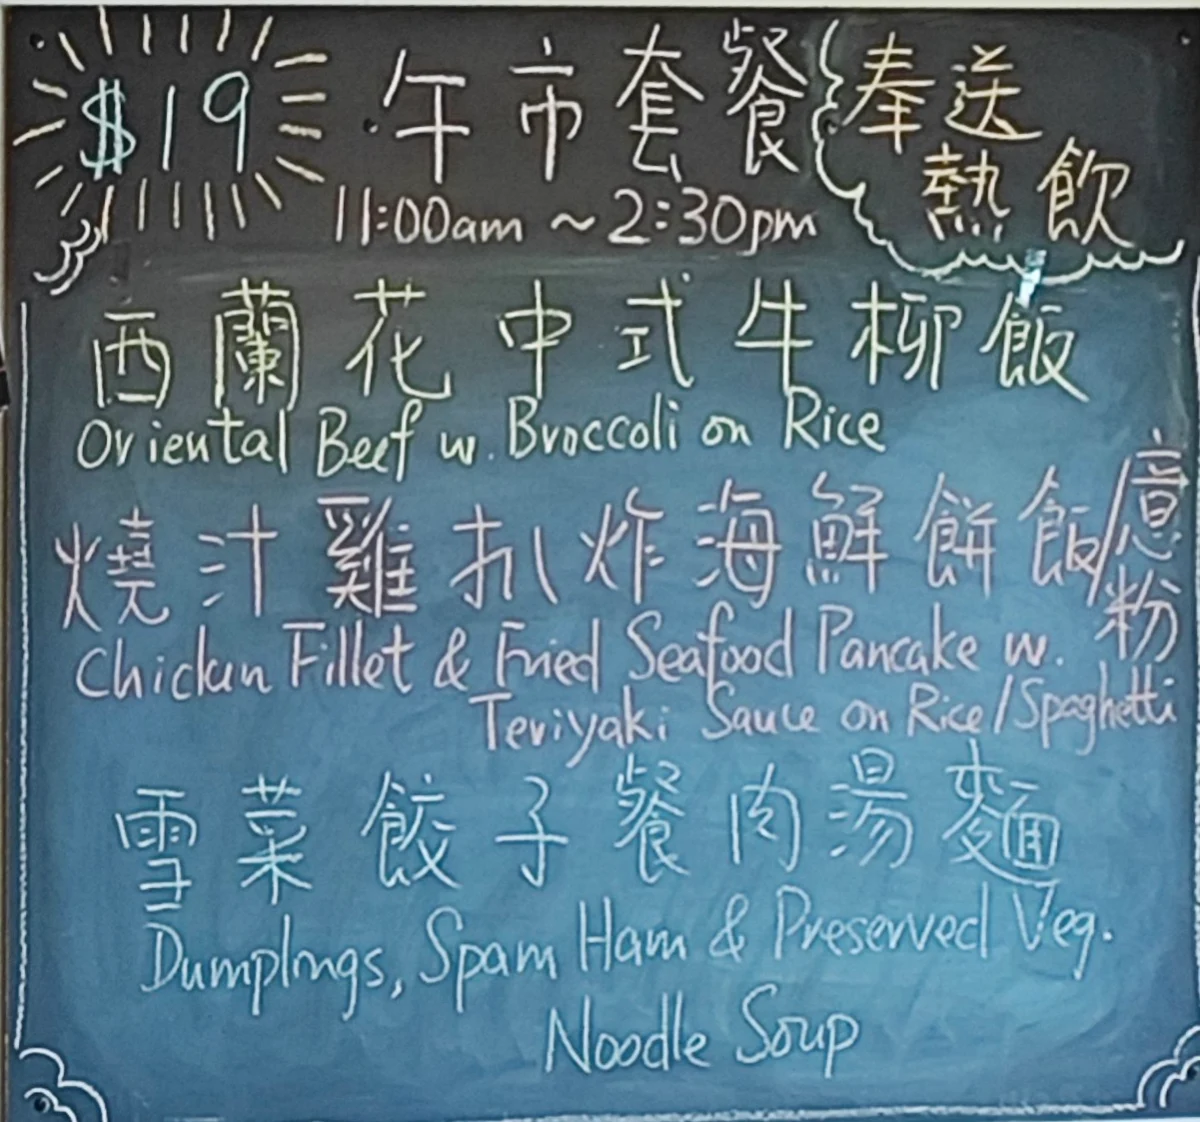 $19
午市套餐
奉送
熱飲
11:00am ~ 2:30pm
西蘭花中式牛柳飯
Oriental Beef w. Broccoli on Rice
燒汁雞扒炸海鮮餅飯/意粉
Chicken Fillet & Fried Seafood Pancake w.
Teriyaki Sauce on Rice/Spaghetti
雪菜餃子餐肉湯麵
Dumplings, Spam Ham & Preserved Veg.
Noodle Soup